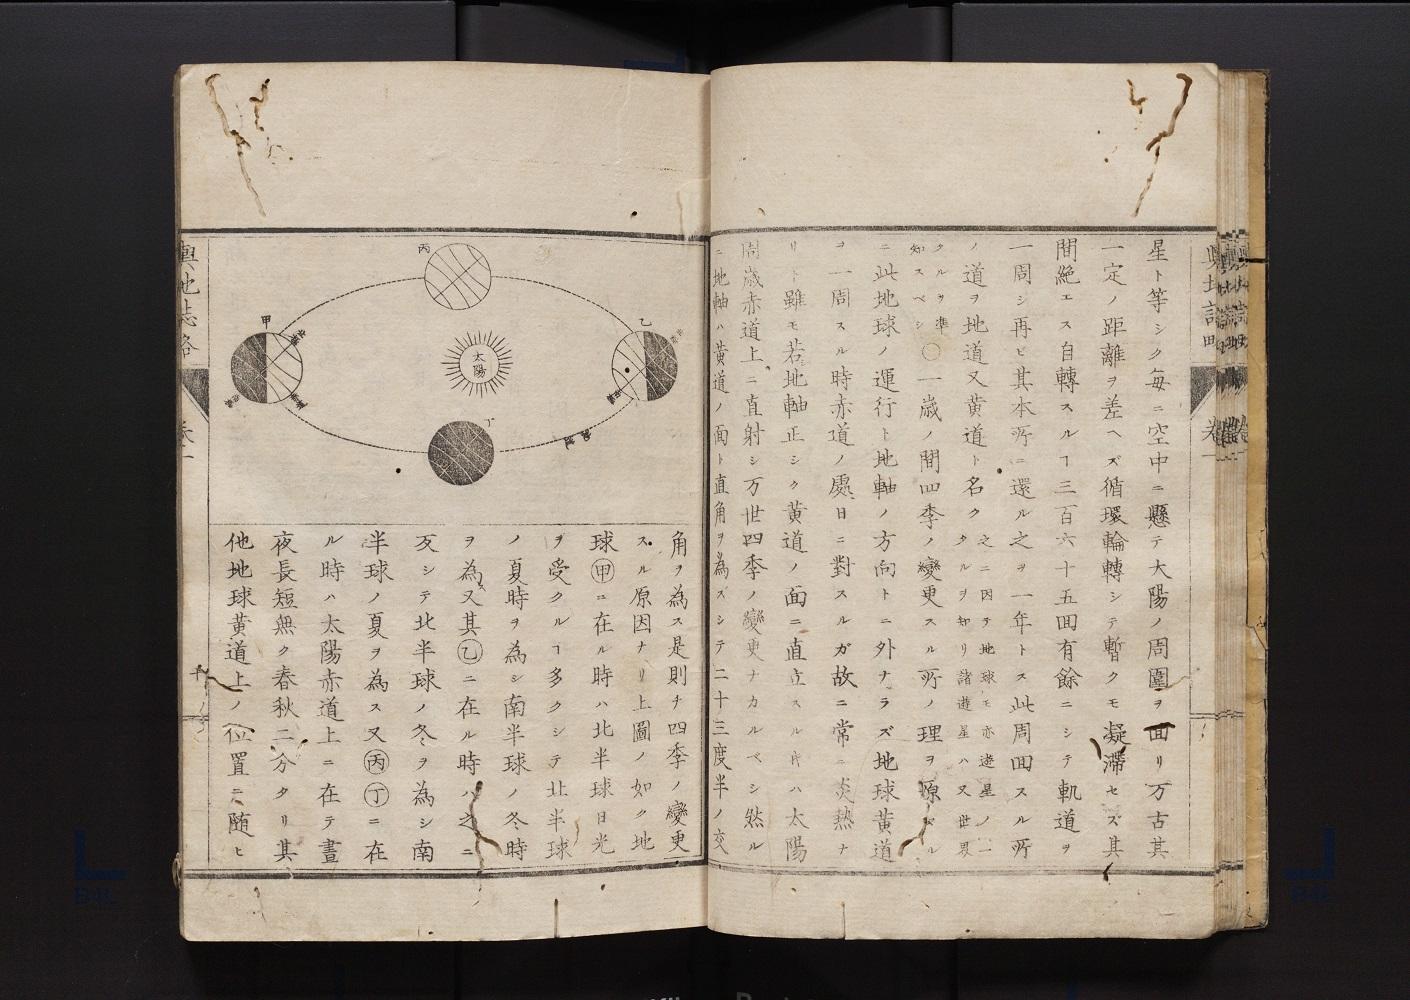 星ト等シク毎ニ空中ニ懸テ大陽ノ周圍ヲ面リ万古其
一定ノ距離ヲ差ヘズ循環輪轉シテ暫クモ凝滯セズ其
間絶エス自轉スルヿ三百六十五回有餘ニシテ軌道ヲ
一周シ再ビ其本所ニ還ル之ヲ一年トス此周回スル所
ノ道ヲ地道又黄道ト名ク
之ニ因テ地球モ亦遊星ノ一
タルヲ知リ諸遊星ハ又世界
タルヲ準
知スベシ
〇一歳ノ間四季ノ變更スル所ノ理ヲ原ヌル
ニ此地球ノ運行ト地軸ノ方向トニ外ナラズ地球黄道
ヲ一周スル時赤道ノ處日ニ對スルガ故ニ常ニ炎熱ナ
リト雖モ若地軸正シク黄道ノ面ニ直立スル時ハ太陽
周歳赤道上ニ直射シ万世四季ノ變更ナカルベシ然ル
ニ地軸ハ黄道ノ面ト直角ヲ為ズシテ二十三度半ノ交
輿地志略
丙
甲
乙
太陽
丁
角ヲ為ス是則チ四季ノ變更
スル原因ナリ上圖ノ如ク地
球甲ニ在ル時ハ北半球日光
ヲ受クルヿ多クシテ北半球
ノ夏時ヲ為シ南半球ノ冬時
ヲ為又其乙ニ在ル時ハ之ニ
反シテ北半球ノ冬ヲ為シ南
半球ノ夏ヲ為ス又丙丁ニ在
ル時ハ太陽赤道上ニ在テ晝
夜長短無ク春秋二分タリ其
他地球黄道上ノ位置ニ随ヒ
輿地志略